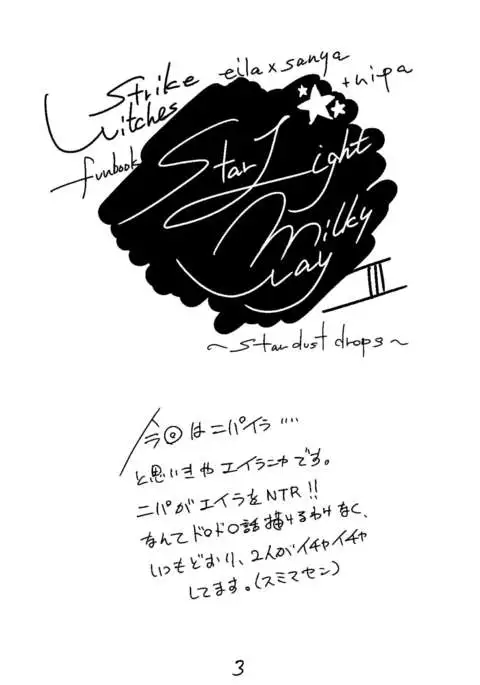 Strike
Witches
eila×sanya
+nipa
funbook
StarLight
Milky
Way
III
～stardust drops～
今回はニパイラ‥‥
と思いきやエイラニャです。
ニパがエイラをNTR!!
なんてドロドロ話描けるわけなく、
いつもどおり、2人がイチャイチャ
してます。(スミマセン)
3